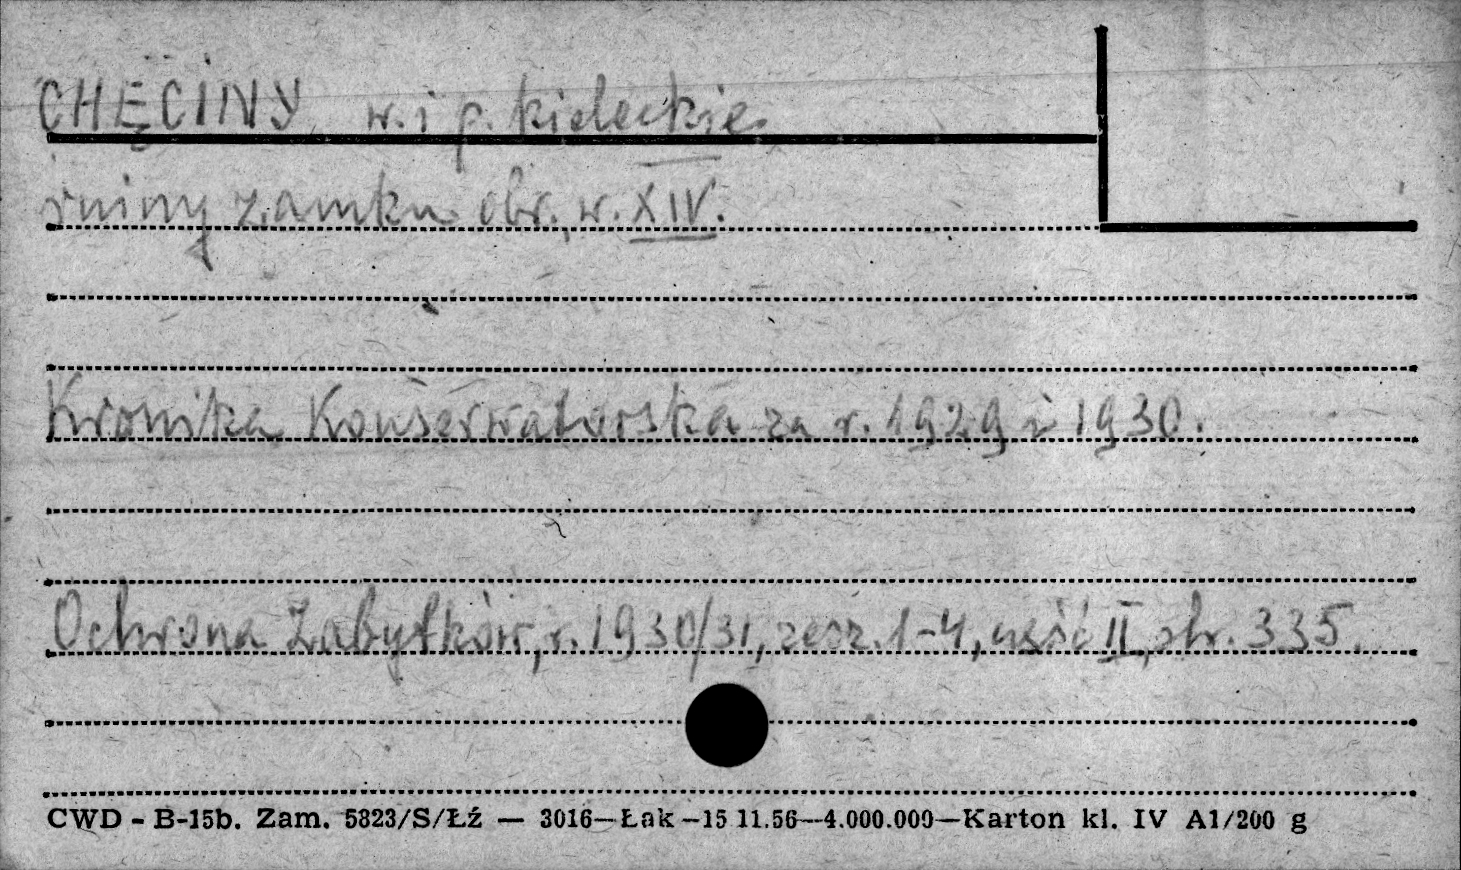 CHĘCINY, w. i p. kieleckie,
ruiny zamku obr. w. XIV.
Kronika Konserwatorska za r. 1929 i 1930.
Ochrona Zabytków, r. 1930/31, zesz. 1-4, część II, str. 335.
CWD - B-15b. Zam. 5823/S/Łź — 3016—Łak —15 11.56—4.000.000—Karton kl. IV A1/200 g